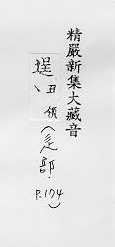 精嚴新集大藏音
𨓈 丑領(辵部.
P.174)